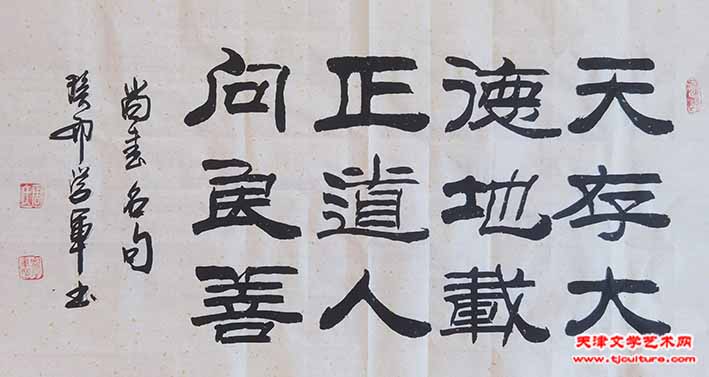 天存大
德地載
正道人
向良善
尚書名句
癸卯学軍书
天津文学艺术网
www.tjculture.com